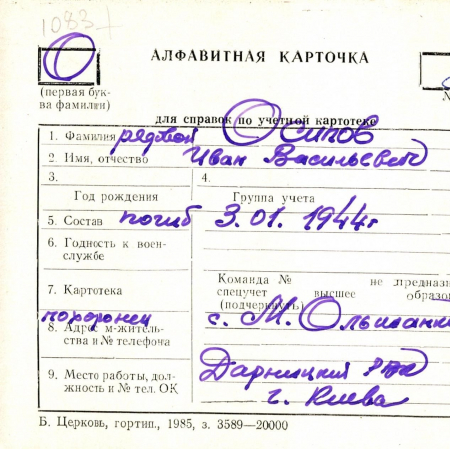 1083
О
АЛФАВИТНАЯ КАРТОЧКА
(первая бук-
ва фамилии)
№
для справок по учетной картотеке
1. Фамилия рядовой Осипов
2. Имя, отчество Иван Васильевич
3. 4.
Год рождения Группа учета
5. Состав погиб 3.01.1944г
6. Годность к воен-
службе
Команда № не предназна
7. Картотека спецучет высшее образо
(подчеркнуть)
похоронен с. М. Ольшанка
8. Адрес м-житель-
ства и № телефона
9. Место работы, дол-
жность и № тел. ОК
Дарницкий РВК
г. Киева
Б. Церковь, гортип., 1985, з. 3589—20000